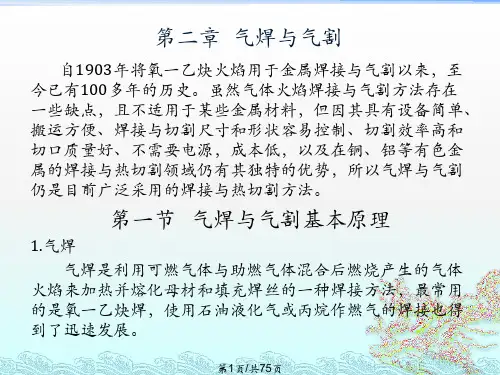 第二章 气焊与气割
自1903年将氧一乙炔火焰用于金属焊接与气割以来，至
今已有100多年的历史。虽然气体火焰焊接与气割方法存在
一些缺点，且不适用于某些金属材料，但因其具有设备简单、
搬运方便、焊接与切割尺寸和形状容易控制、切割效率高和
切口质量好、不需要电源，成本低，以及在铜、铝等有色金
属的焊接与热切割领域仍有其独特的优势，所以气焊与气割
仍是目前广泛采用的焊接与热切割方法。
第一节 气焊与气割基本原理
1.气焊
气焊是利用可燃气体与助燃气体混合后燃烧产生的气体
火焰来加热并熔化母材和填充焊丝的一种焊接方法，最常用
的是氧一乙炔焊，使用石油液化气或丙烷作燃气的焊接也得
到了迅速发展。
第1页/共75页